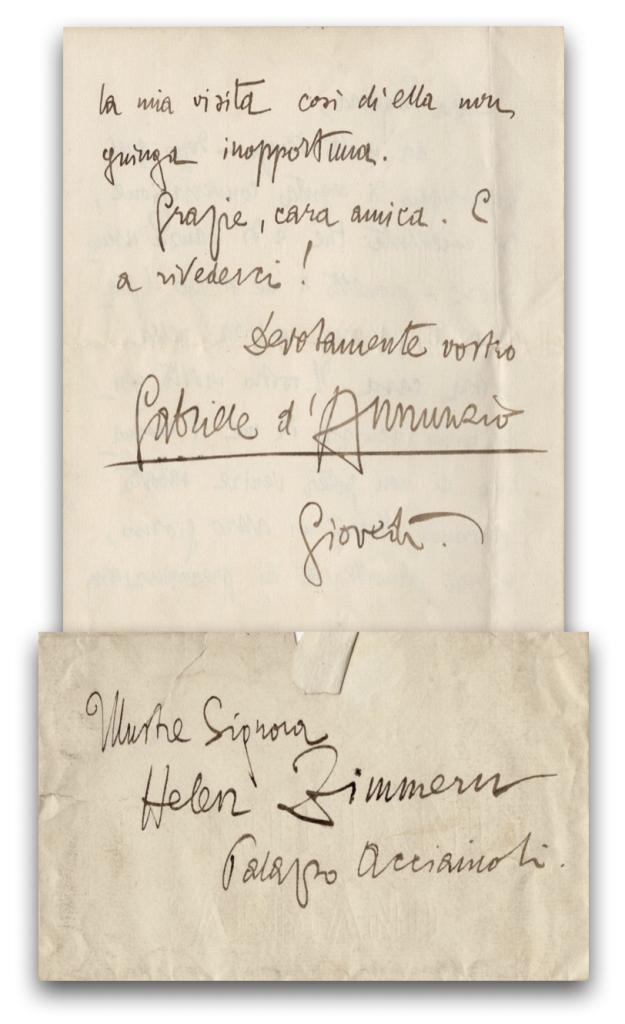 la mia visita così ch'ella non
giunga inopportuna.
Grazie, cara amica. E
a rivederci!
Devotamente vostro
Gabriele d'Annunzio
Giovedì.
Illustre Signora
Helen Zimmern
Palazzo Acciaiuoli.